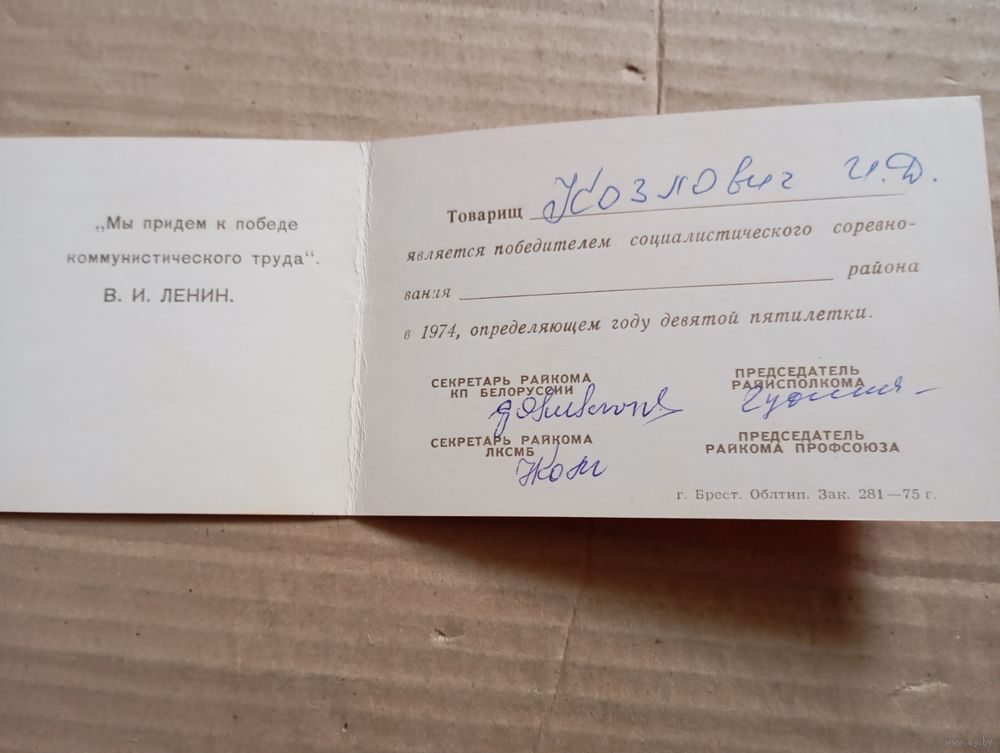 „Мы придем к победе
коммунистического труда“.
В. И. ЛЕНИН.
Товарищ Козлович И.Д.
является победителем социалистического соревно-
вания района
в 1974, определяющем году девятой пятилетки.
СЕКРЕТАРЬ РАЙКОМА
КП БЕЛОРУССИИ
ПРЕДСЕДАТЕЛЬ
РАЙИСПОЛКОМА
СЕКРЕТАРЬ РАЙКОМА
ЛКСМБ
ПРЕДСЕДАТЕЛЬ
РАЙКОМА ПРОФСОЮЗА
г. Брест. Облтип. Зак. 281—75 г.
www.ay.by